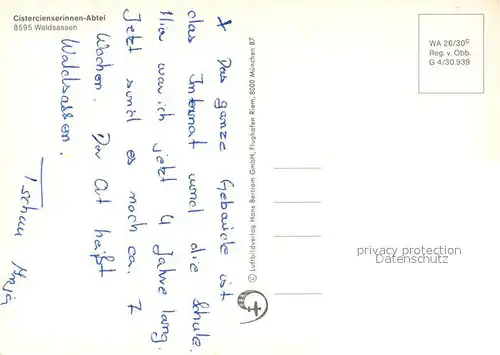 Cistercienserinnen-Abtei
8595 Waldsassen
x Das ganze Gebäude ist
das Internat und die Schule.
Hier war ich jetzt 4 Jahre lang.
Jetzt sind es noch ca. 7
Wochen. Der Ort heißt
Waldsassen.
Tschau Anja
© Luftbildverlag Hans Bertram GmbH, Flughafen Riem, 8000 München 87
WA 26/30c
Reg. v. Obb.
G 4/30.939
privacy protection
Datenschutz